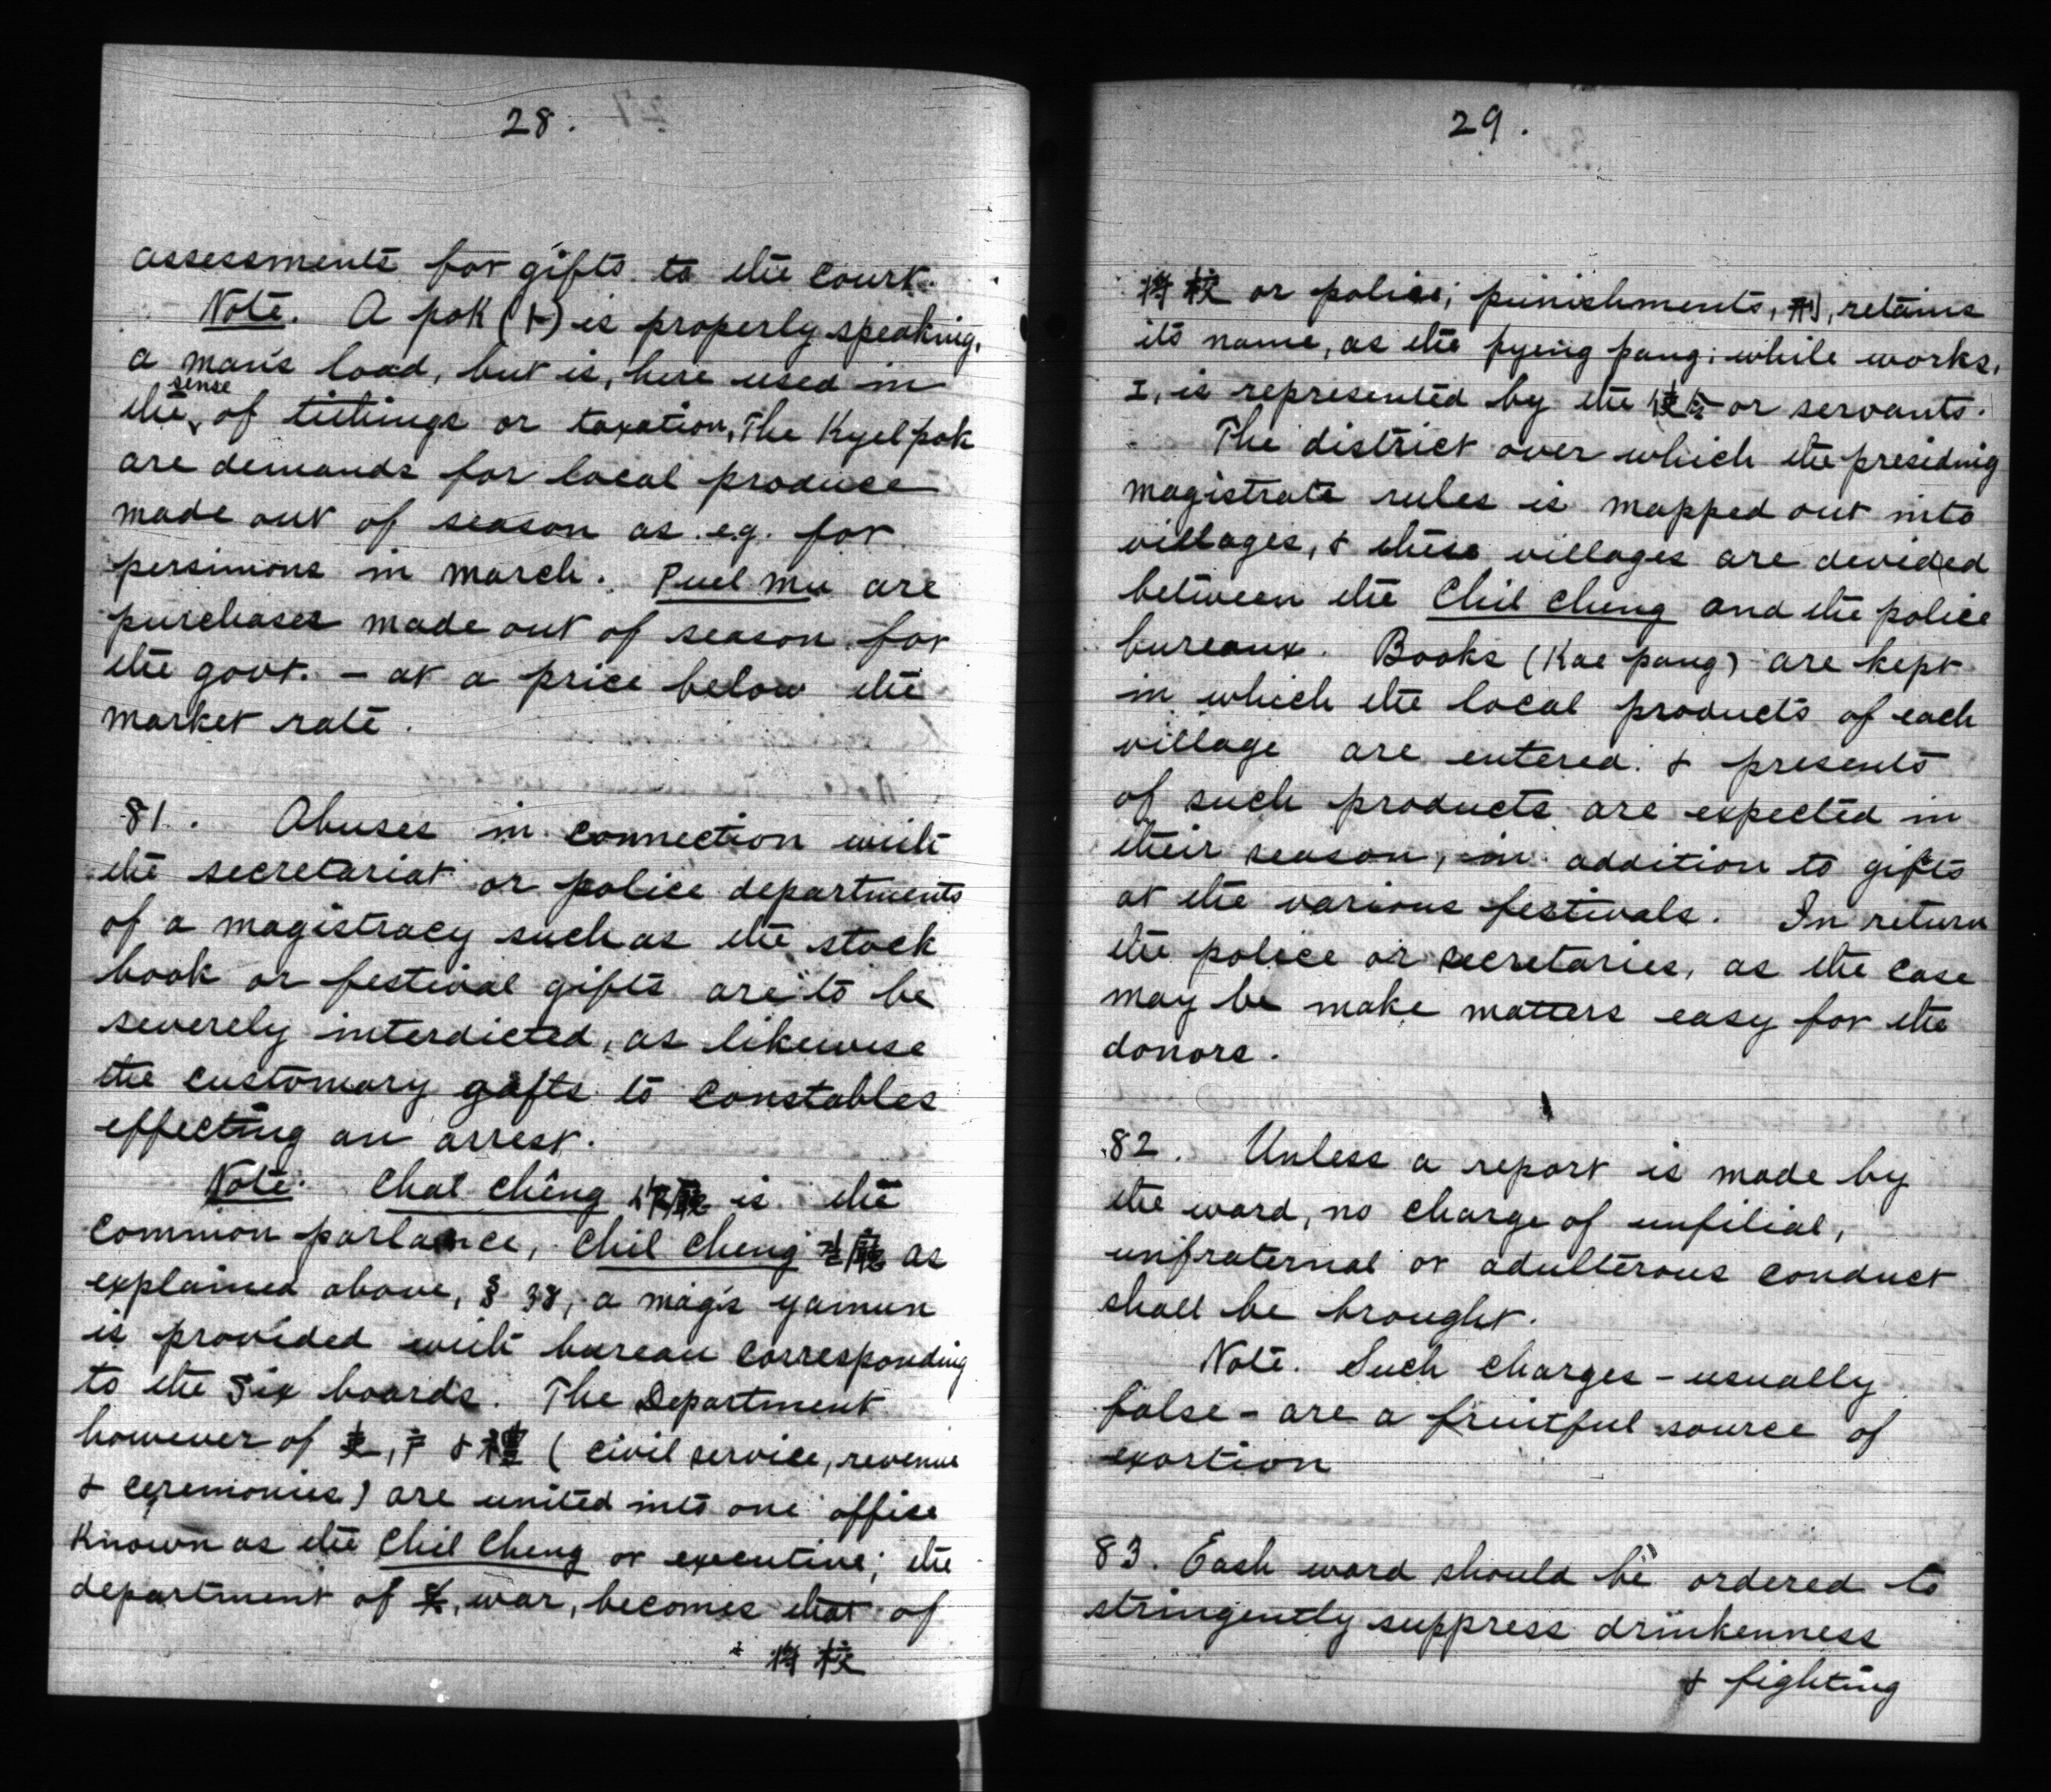 28.
assessments for gifts to the court.
Note. A pok (卜) is properly speaking,
a man's load, but is, here used in
the sense of tithings or taxation, The Kyel pok
are demands for local produce
made out of season as e.g. for
persimons in march. Puel mu are
purchases made out of season for
the govt. - at a price below the
market rate.
81. Abuses in connection with
the secretariat or police departments
of a magistracy such as the stock
book or festival gifts are to be
severely interdicted, as likewise
the customary gifts to constables
effecting an arrest.
Note. Chal Chêng 作廳 is the
common parlance, Chil Cheng 秩廳 as
explained above, § 38, a mag's yamun
is provided with bureau corresponding
to the Six boards. The Department
however of 吏, 戶 & 禮 (civil service, revenue
& ceremonies) are united into one office
Known as the Chil Cheng or executive; the
department of 兵, war, becomes that of
將校
29.
將校 or police; punishments, 刑, retains
its name, as the hyeng pang; while works,
工, is represented by the 使令 or servants.
The district over which the presiding
magistrate rules is mapped out into
villages, & these villages are devided
between the Chil Cheng and the police
bureaux. Books (Kae pang) are kept
in which the local products of each
village are entered & presents
of such products are expected in
their season, in addition to gifts
at the various festivals. In return
the police or secretaries, as the case
may be make matters easy for the
donors.
82. Unless a report is made by
the ward, no charge of unfilial,
unfraternal or adulterous conduct
shall be brought.
Note. Such charges - usually
false - are a fruitful source of
exortion
83. Each ward should be ordered to
stringently suppress drunkenness
& fighting